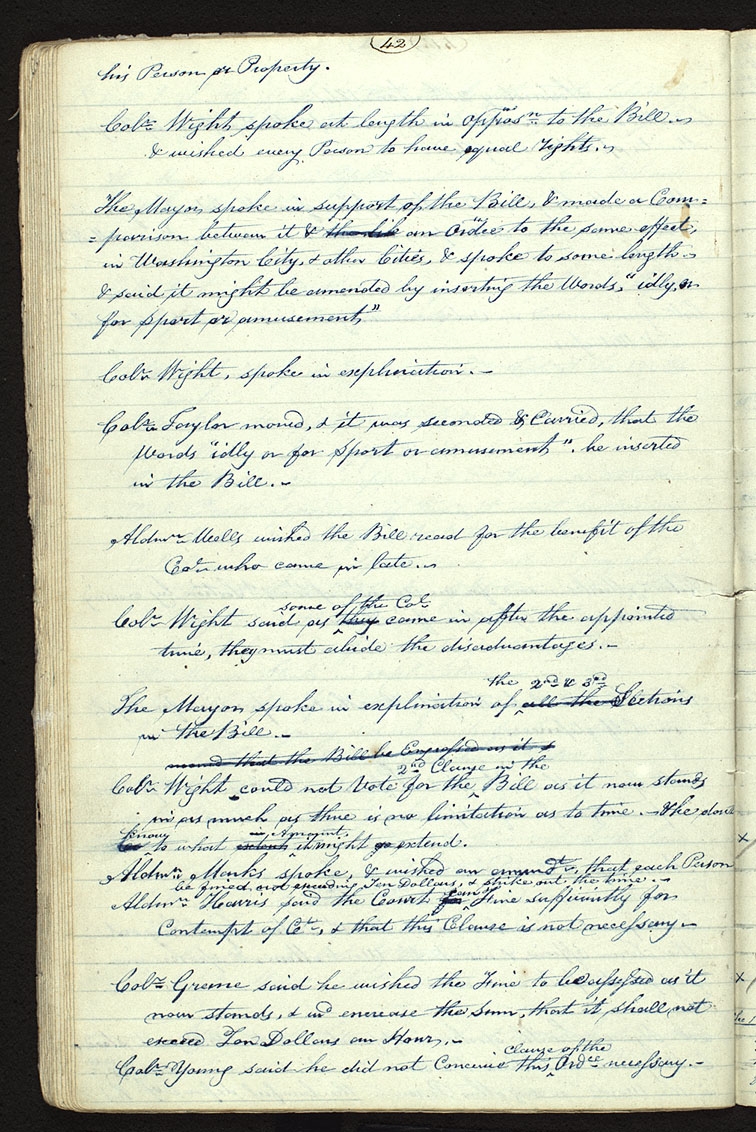 42
his Person or Property.
Colr. Wight spoke at length in opposn. to the Bill.
& wished every Person to have equal rights.
The Mayor spoke in support of the Bill, & made a Com=
=parison between it & the like an Ordce to the same effect,
in Washington City, & other Cities, & spoke to some length
& said it might be amended by inserting the Words, "idly, or
for sport or amusement"
Colr. Wight, spoke in explination.
Colr. Taylor moved, & it was seconded & Carried, that the
Words "idly or for sport or amusement". be inserted
in the Bill.
Aldmn. Wells wished the Bill read for the benefit of the
Cors. who came in late.
some of the Cors.
Colr. Wight said as they came in after the appointed
time, they must abide the disadvantages.
the 2nd & 3rd
The Mayor spoke in explination of all the Sections
in the Bill.
moved that the Bill be Engrossed as it
2nd Clause in the
Colr. Wight could not Vote for the Bill as it now stands
in as much as there is no limitation as to time. & he dont
know in Amount,
to what extent it might go extend.
Aldmn. Marks spoke, & wished an amendt., that each Person
be fined not exceeding Ten Dollars, & strike out the time.
Aldmn. Harris said the Court can Fine sufficiently for
Contempt of Ct., & that this Clause is not necessary.
Colr. Greene said he wished the Fine to be assessed as it
now stands, & increase the Sum, that it shall not
exceed Ten Dollars an Hour.
clause of the
Colr. Young said he did not Conceive this Ordce necessary.